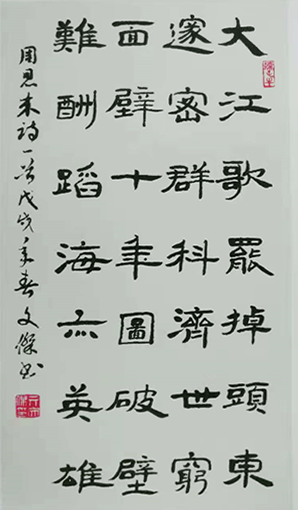 大江歌罷掉頭東
邃密群科濟世窮
面壁十年圖破壁
難酬蹈海亦英雄
周恩来詩一首戊戌年春文傑书